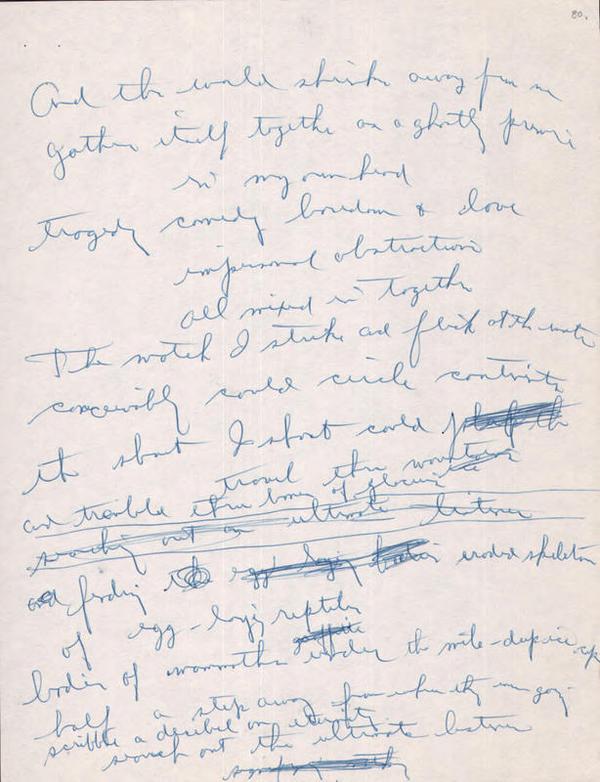 80.
And the world shrinks away from me
gathers itself together as a ghostly promise
in my own head
tragedy comedy boredom & love
impersonal abstractions
all mixed in together
The match I strike and flick at the water
conceivably could circle continents
the shout I shout could
travel thru mountains
and tremble thru bones of glaciers
searching out an ultimate listener
and finding egg-laying bodies eroded skeletons
of egg-laying reptiles
bodies of mammoths under the mile-deep ice cap
half a step away from where they were going
scribble a decibel on eternity
search out the ultimate listener